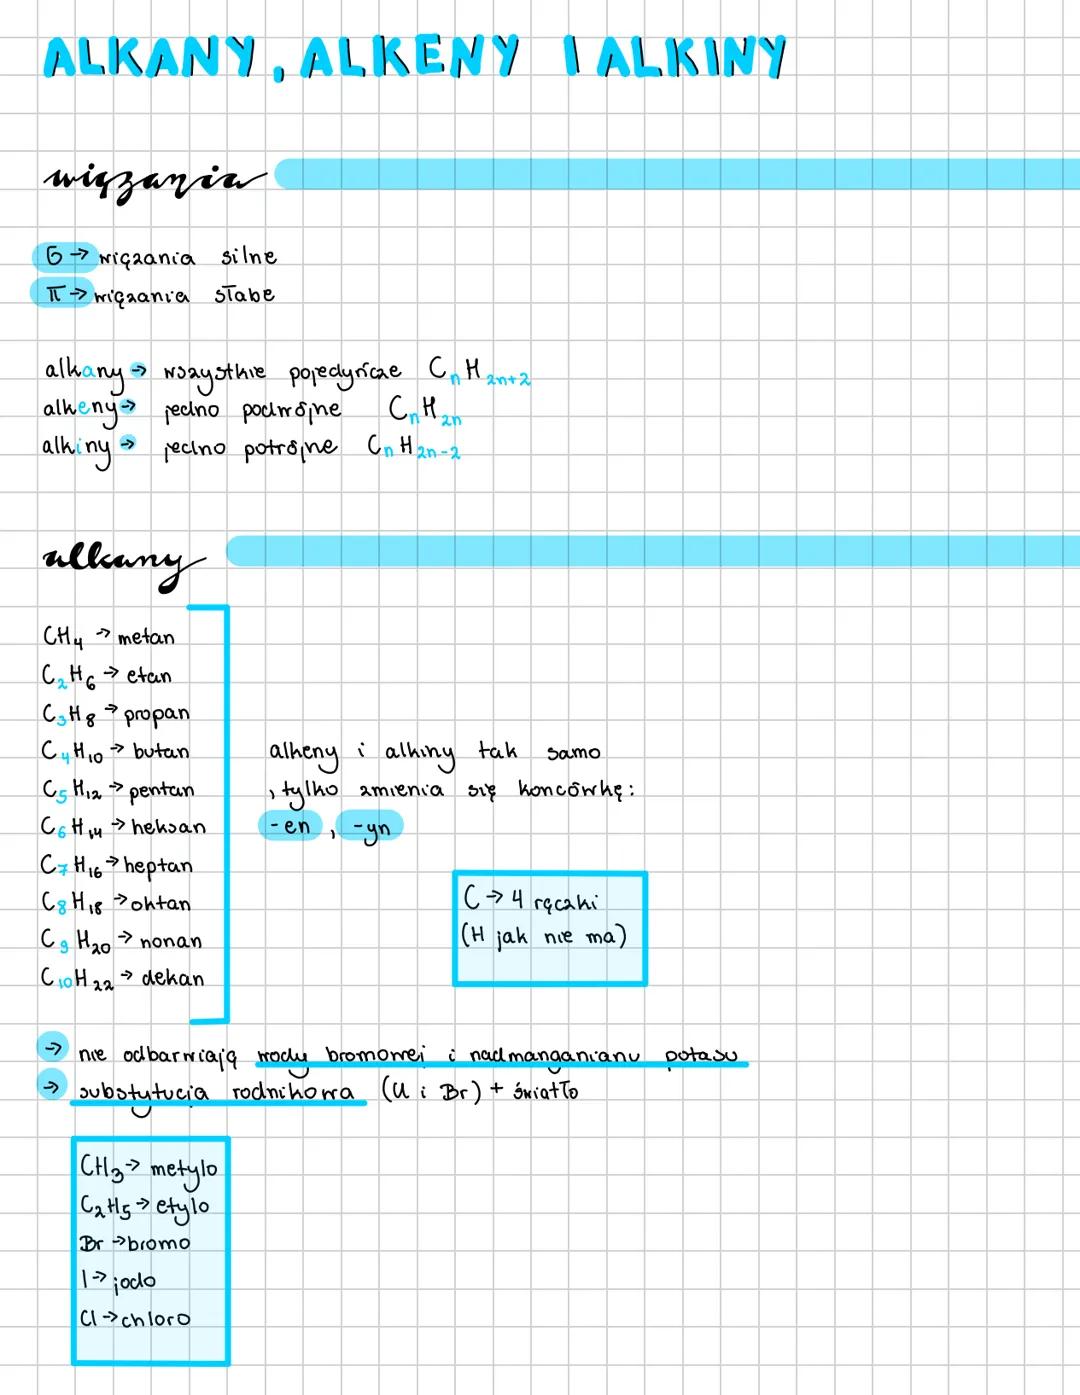 ALKANY, ALKENY I ALKINY
wiązania
σ → wiązania silne
π → wiązania słabe
alkany → wszystkie pojedyńcze CₙH₂ₙ₊₂
alkeny → jedno podwójne CₙH₂ₙ
alkiny → jedno potrójne CₙH₂ₙ₋₂
alkany
CH₄ → metan
C₂H₆ → etan
C₃H₈ → propan
C₄H₁₀ → butan
C₅H₁₂ → pentan
C₆H₁₄ → heksan
C₇H₁₆ → heptan
C₈H₁₈ → oktan
C₉H₂₀ → nonan
C₁₀H₂₂ → dekan
alkeny i alkiny tak samo
, tylko zmienia się koncówkę:
-en , -yn
C → 4 rączki
(H jak nie ma)
→ nie odbarwiają wody bromowej i nadmanganianu potasu
→ substytucja rodnikowa (Cl i Br) + światło
CH₃ → metylo
C₂H₅ → etylo
Br → bromo
I → jodo
Cl → chloro